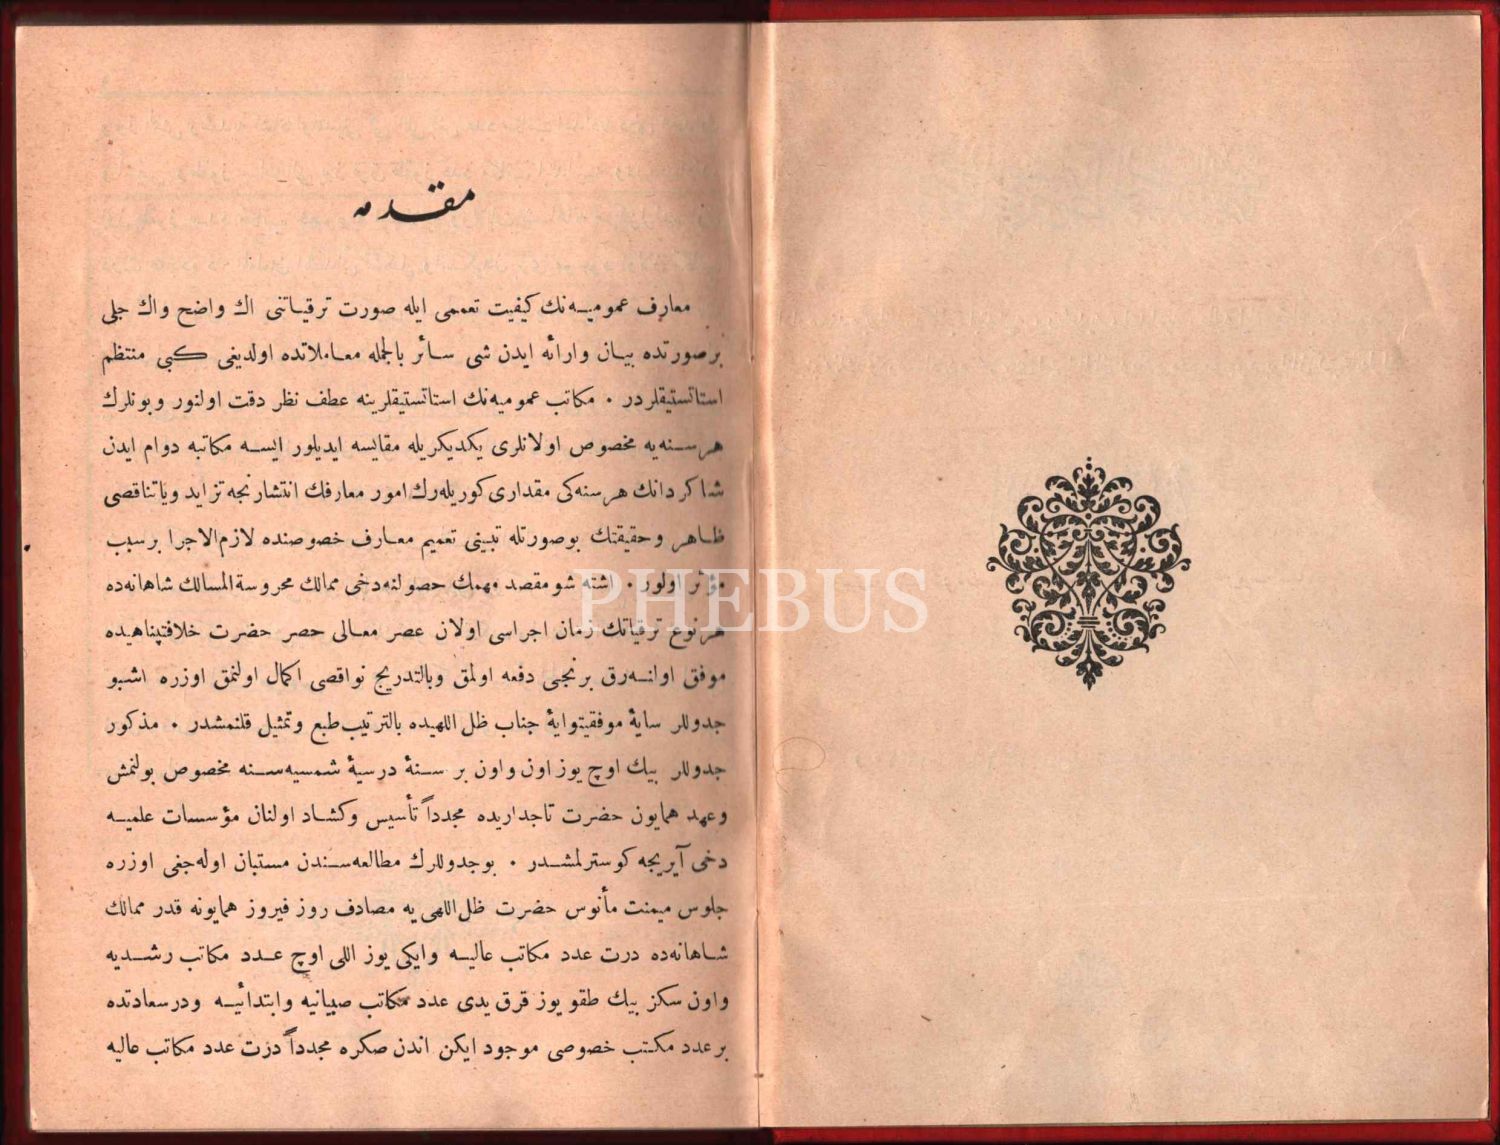 مقدمه
معارف عموميه‌نك كيفيت تعممى ايله صورت ترقياتنى اك واضح واك جلى
برصورتده بيان وارائه ايدن شى سائر بالجمله معاملاتده اولديغى كبى منتظم
استاتستيقلردر . مكاتب عموميه‌نك استاتستيقلرينه عطف نظر دقت اولنور وبونلرك
هرسنه‌يه مخصوص اولانلرى يكديكريله مقايسه ايديلور ايسه مكاتبه دوام ايدن
شاكردانك هرسنه‌كى مقدارى كوريله‌رك امور معارفك انتشارنجه تزايد وياتناقصى
ظاهر وحقيقتك بوصورتله تبينى تعميم معارف خصوصنده لازم‌الاجرا برسبب
مؤثر اولور . اشته شومقصد مهمك حصولنه‌دخى ممالك محروسةالمسالك شاهانه‌ده
هرنوع ترقياتك زمان اجراسى اولان عصر معالى حصر حضرت خلافتپناهيده
موفق اوله‌رق برنجى دفعه اولمق وبالتدريج نواقصى اكمال اولنمق اوزره اشبو
جدوللر سايۀ موفقيتوايۀ جناب ظل‌اللهيده بالترتيب‌طبع وتمثيل قلنمشدر . مذكور
جدوللر بيك اوچ يوز اون واون بر سنۀ درسيۀ شمسيه‌سنه مخصوص بولنمش
وعهد همايون حضرت تاجداريده مجدداً تأسيس وكشاد اولنان مؤسسات علميه
دخى آيريجه كوسترلمشدر . بوجدوللرك مطالعه‌سندن مستبان اوله‌جغى اوزره
جلوس ميمنت مأنوس حضرت ظل‌اللهى‌يه مصادف روز فيروز همايونه قدر ممالك
شاهانه‌ده درت عدد مكاتب عاليه وايكى يوز اللى اوچ عدد مكاتب رشديه
واون سكز بيك طقوز يوز قرق يدى عدد مكاتب صبيانيه وابتدائيه ودرسعادتده
برعدد مكتب خصوصى موجود ايكن اندن صكره مجدداً درت عدد مكاتب عاليه
PHEBUS